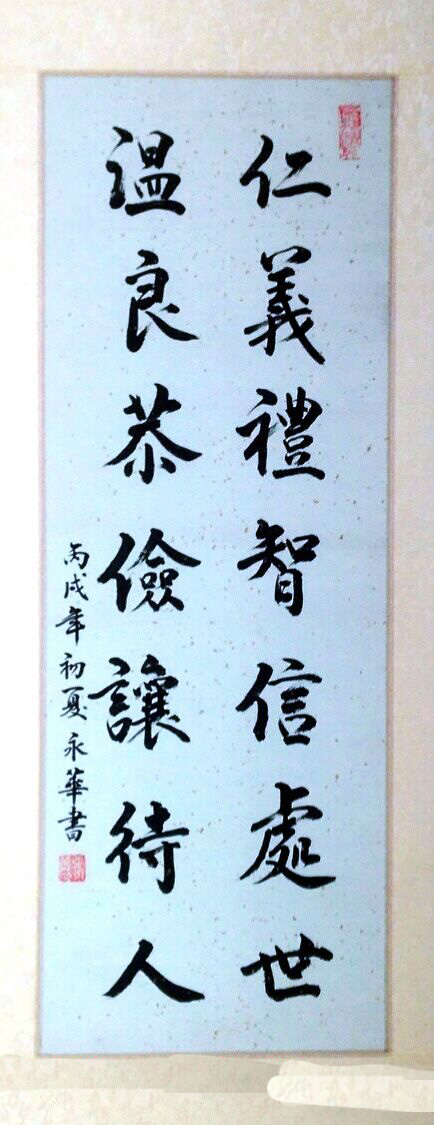 仁義禮智信處世
温良恭儉讓待人
丙戌年初夏永華書